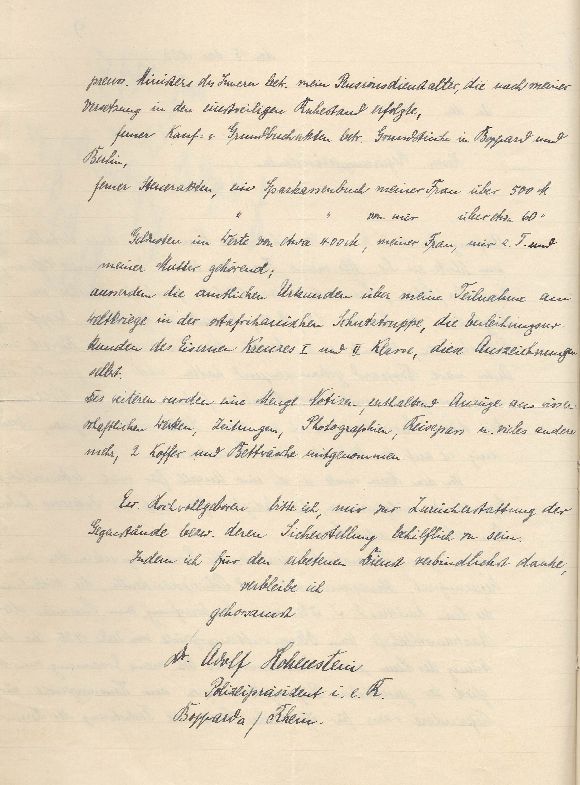 preuss. Ministers des Innern betr. mein Pensionsdienstalter, die nach meiner
Versetzung in den einstweiligen Ruhestand erfolgte,
ferner Kauf- u. Grundbuchakten betr. Grundstücke in Boppard und
Berlin,
ferner Steuerakten, ein Sparkassenbuch meiner Frau über 500 M
" " von mir über etwa 60 "
Geldkosten im Werte von etwa 400 M, meiner Frau, mir z. T. und
meiner Mutter gehörend;
ausserdem die amtlichen Urkunden über meine Teilnahme am
Weltkriege in der ostafrikanischen Schutztruppe, die Verleihungsur-
kunden des Eisernen Kreuzes I und II Klasse, diese Auszeichnungen
selbst.
Des weiteren wurden eine Menge Notizen, enthaltend Auszüge aus wissen-
schaftlichen Werken, Zeitungen, Photographien, Reisepass u. vieles andere
mehr, 2 Koffer und Bettwäsche mitgenommen
Ew. Hochwollgeboren bitte ich, mir zur Zurückerstattung der
Gegenstände bezw. deren Sicherstellung behilflich zu sein.
Indem ich für den erbetenen Dienst verbindlichst danke,
verbleibe ich
gehorsamst
Dr. Adolf Hohenstein
Polizeipräsident i. e. R.
Boppard a / Rhein.